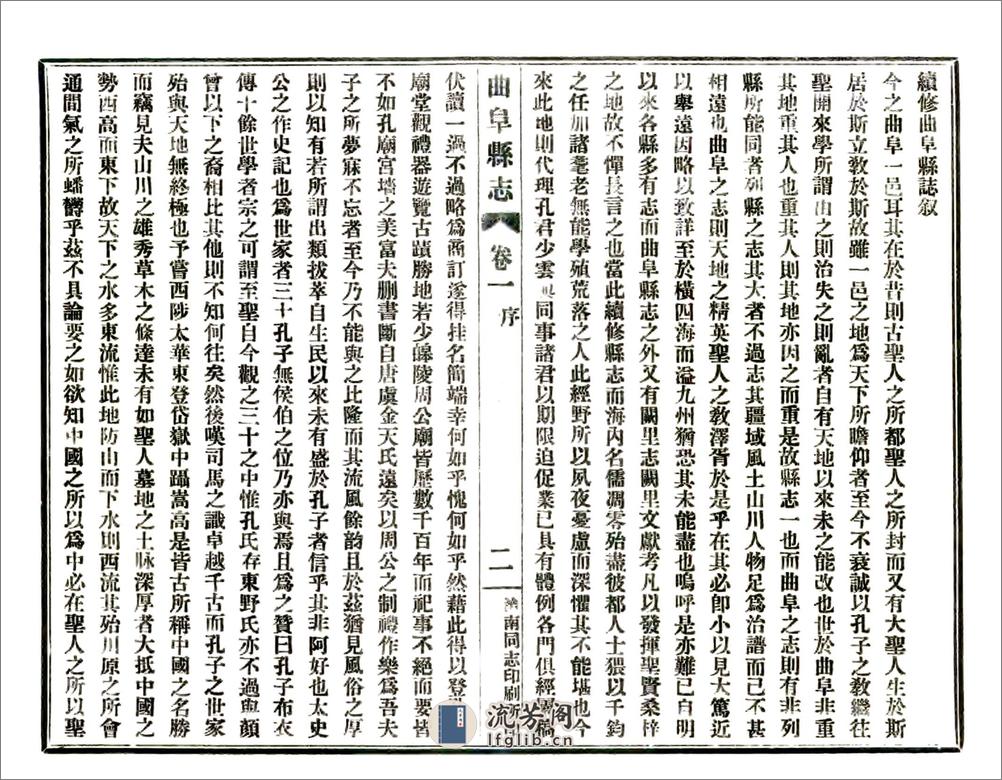 續修曲阜縣誌叙
今之曲阜一邑耳其在於昔則古聖人之所都聖人之所封而又有大聖人生於斯
居於斯立敎於斯故雖一邑之地爲天下所瞻仰者至今不衰誠以孔子之敎繼往
聖開來學所謂由之則治失之則亂者自有天地以來未之能改也世於曲阜非重
其地重其人也重其人則其地亦因之而重是故縣志一也而曲阜之志則有非列
縣所能同者列縣之志其大者不過志其疆域風土山川人物足爲治譜而已不甚
相遠也曲阜之志則天地之精英聖人之敎澤胥於是乎在其必卽小以見大篤近
以舉遠因略以致詳至於橫四海而溢九州猶恐其未能盡也嗚呼是亦難已自明
以來各縣多有志而曲阜縣志之外又有闕里志闕里文獻考凡以發揮聖賢桑梓
之地故不憚長言之也當此續修縣志而海內名儒凋零殆盡彼都人士猥以千鈞
之任加諸耄老無能學殖荒落之人此經野所以夙夜憂慮而深懼其不能堪也今
來此地則代理孔君少雲與同事諸君以期限迫促業已具有體例各門俱經 稿
曲阜縣志 卷一 序 二 濟南同志印刷所
伏讀一過不過略爲商訂遂得挂名簡端幸何如乎愧何如乎然藉此得以登
廟堂觀禮器遊覽古蹟勝地若少皞陵周公廟皆歷數千百年而祀事不絕而要皆
不如孔廟宮墻之美富夫删書斷自唐虞金天氏遠矣以周公之制禮作樂爲吾夫
子之所夢寐不忘者至今乃不能與之比隆而其流風餘韻且於茲猶見風俗之厚
則以知有若所謂出類拔萃自生民以來未有盛於孔子者信乎其非阿好也太史
公之作史記也爲世家者三十孔子無侯伯之位乃亦與焉且爲之贊曰孔子布衣
傳十餘世學者宗之可謂至聖自今觀之三十之中惟孔氏存東野氏亦不過與顏
曾以下之裔相比其他則不知何往矣然後嘆司馬之識卓越千古而孔子之世家
殆與天地無終極也予嘗西陟太華東登岱嶽中躡嵩高是皆古所稱中國之名勝
而竊見夫山川之雄秀草木之條達未有如聖人墓地之土脉深厚者大抵中國之
勢西高而東下故天下之水多東流惟此地防山而下水則西流其殆川原之所會
通間氣之所蟠欝乎茲不具論要之如欲知中國之所以爲中必在聖人之所以聖
流芳閣
lfglib.cn